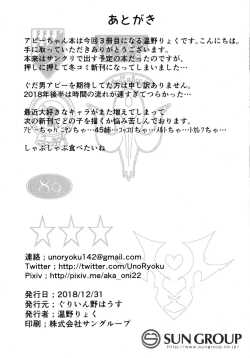 あとがき
アビーちゃん本は今回3冊目になる温野りょくです。こんにちは。
手に取っていただきありがとうございます。
本来はサンクリで出す予定の本だったのですが、
押しに押して冬コミ新刊になってしまいました…
ぐだ男アビーを期待してた方は申し訳ありません。
2018年後半は時間の流れが速すぎてつらかった…
最近大好きなキャラがまた増えてしまって
次の新刊でどの子を描くか悩み苦しんでおります。
しゃぶしゃぶ食べたいね
連絡；unoryoku142@gmail.com
Twitter；http://twitter.com/UnoRyoku
Pixiv；http://pixiv.me/aka_oni22
発行日；2018/12/31
発行元；ぐりいん野はうす
発行者；温野りょく
印刷；株式会社サングループ
SUN GROUP